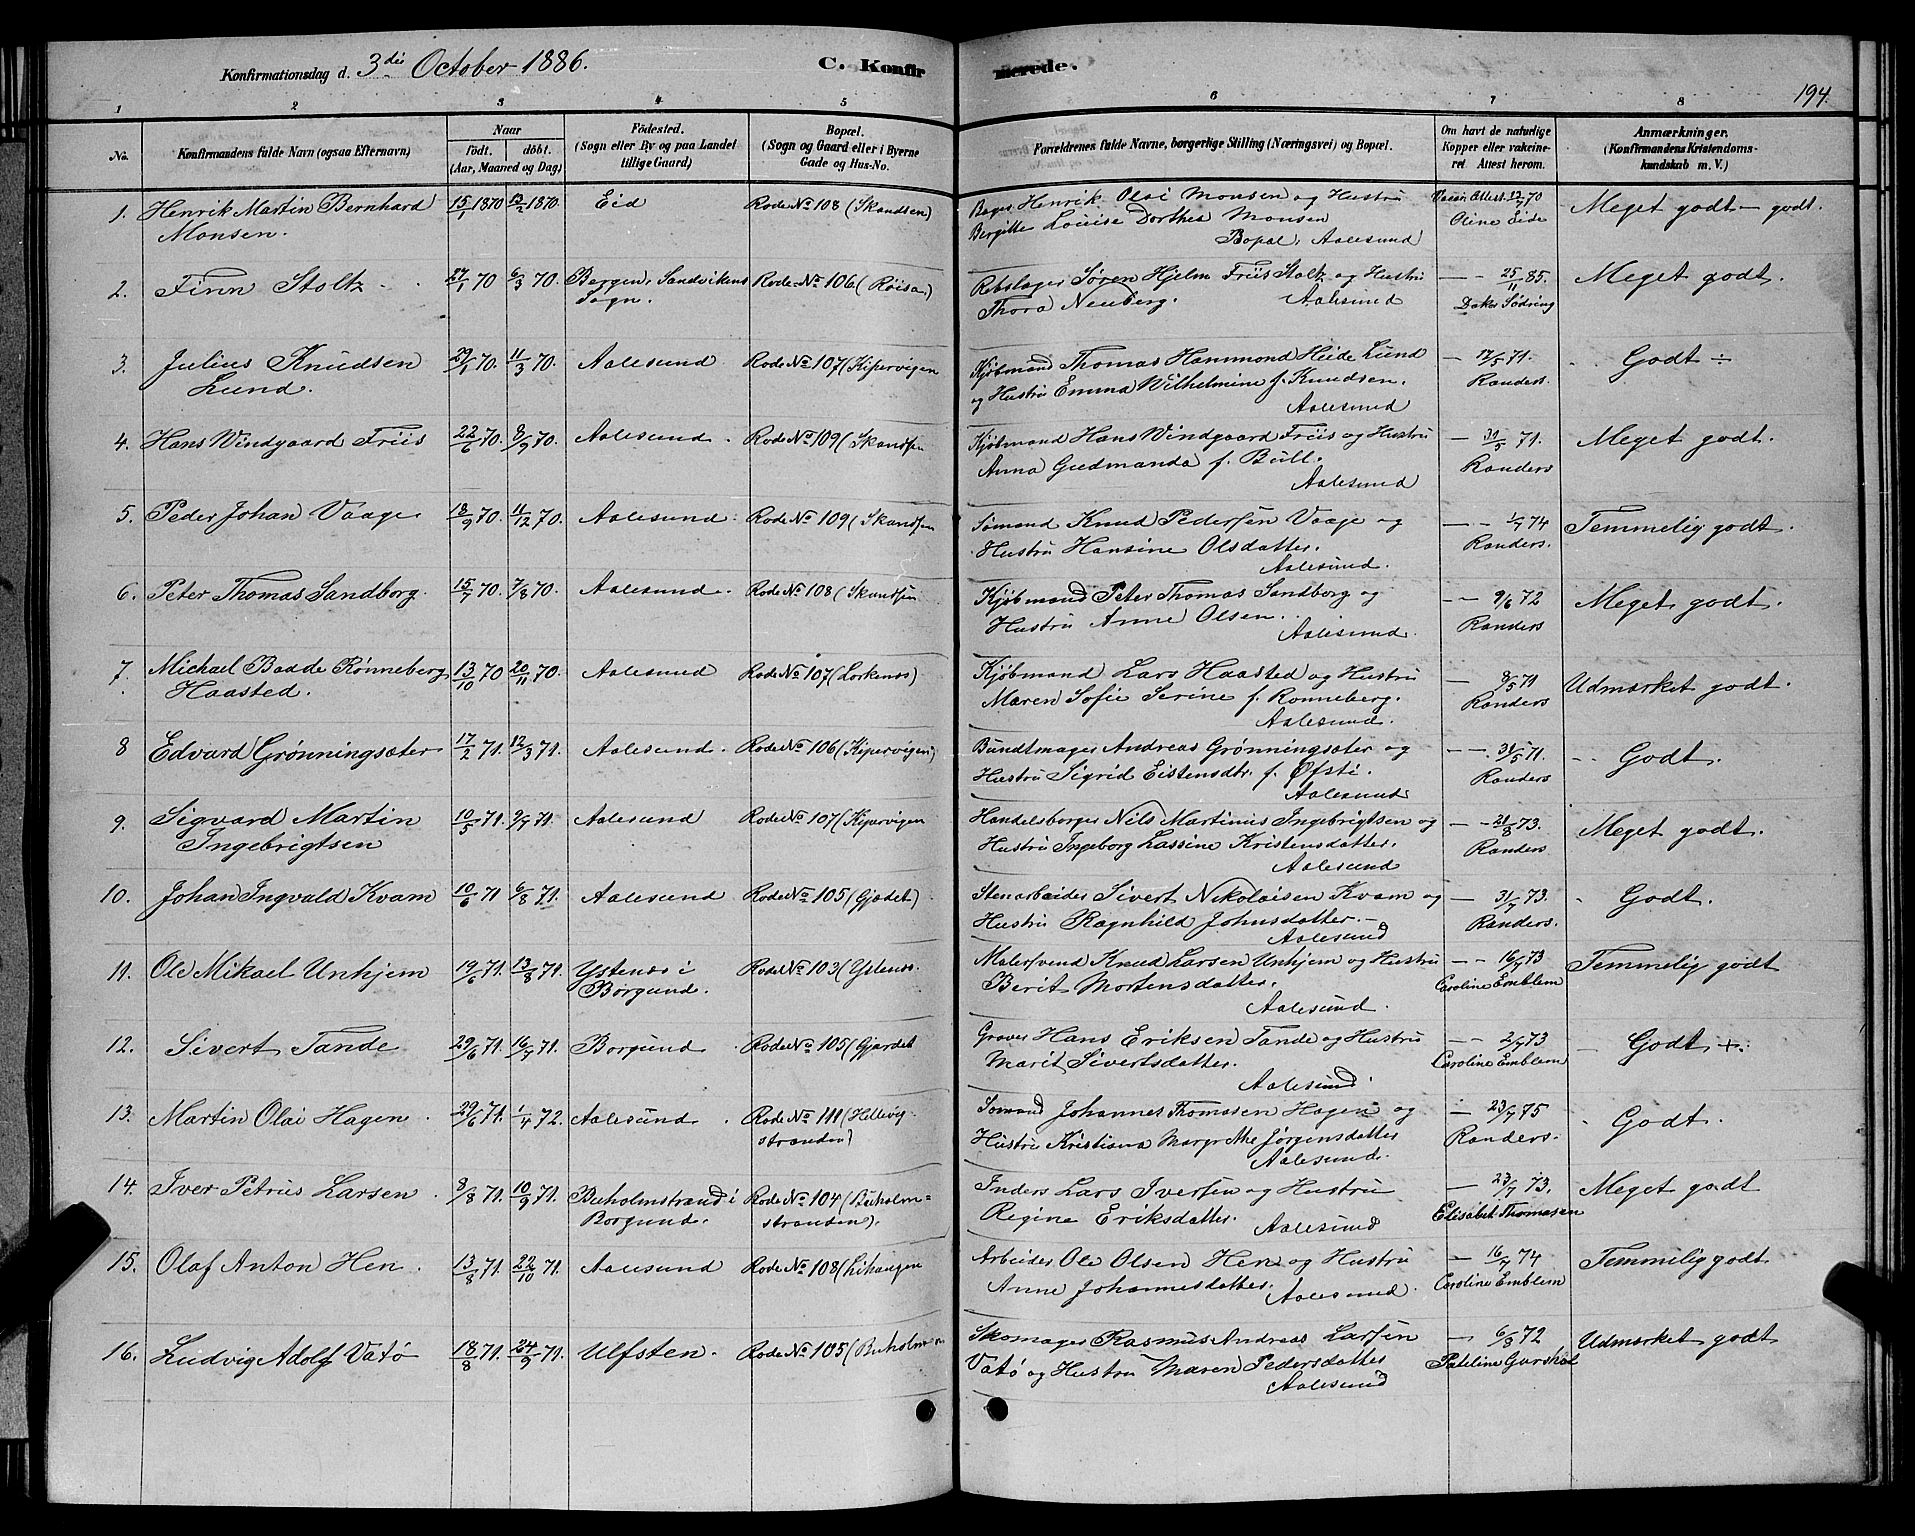 Konfirmationsdag d. 3die October 1886. C. Konfirmerede. 194.
1 2 3 4 5 6 7 8
No. Konfirmandens fulde Navn (ogsaa Efternavn) Naar födt. döbt. (Aar, Maaned og Dag) Födested. (Sogn eller By og paa Landet tillige Gaard) Bopæl. (Sogn og Gaard eller i Byerne Gade og Hus-No. Forældrenes fulde Navne, borgerlige Stilling (Næringsvei) og Bopæl. Om havt de naturlige Kopper eller vakcineret. Attest herom. Anmærkninger. (Konfirmandens Kristendomskundskab m. V.)
1. Henrik Martin Bernhard 15/1 1870 13/2 1870. Eid Rode No 108 (Skandsen) Bager Henrik Olai Monsen og Hustru Vaccin. Attest. 12/7 70 Meget godt - godt.
Monsen. Bergitte Louise Dorthea Monsen Oline Eide
Bopæl, Aalesund
2. Finn Stoltz 27/1 70 6/3 70. Bergen, Sandvikens Rode No 106 (Røisa) Rebslager Søren Hjelm Friis Stoltz og Hustru — - 25/11 85. Meget godt.
Sogn. Thora Neuberg. Aalesund Dokter Sødring
3. Julius Knudsen 29/1 70. 11/3 70. Aalesund Rode No 107 (Kipervigen Kjøbmand Thomas Hammond Heide Lund — 17/5 71. Godt ÷
Lund. og Hustru Emma Wilhelmine f. Knudsen. Randers.
Aalesund
4. Hans Windgaard Friis 22/6 70. 8/9 70. Aalesund. Rode No 109 (Skandsen Kjøbmand Hans Windgaard Friis og Hustru — 31/5 71. Meget godt.
Anna Gudmanda f. Bull. Randers
Aalesund
5. Peder Johan Vaage 18/9 70. 11/12 70. Aalesund. Rode No 109 (Skandsen Sømand Knud Pedersen Vaaje og — - 1/7 74 Temmelig godt.
Hustru Hansine Olsdatter. Randers.
Aalesund.
6. Peter Thomas Sandborg. 15/7 70. 7/8 70. Aalesund. Rode No 108 (Skandsen Kjøbmand Peter Thomas Sandborg og — - 9/6 72 Meget godt.
Hustru Anne Olsen. Randers
Aalesund.
7. Michael Badde Rønneberg 13/10 70 20/11 70. Aalesund Rode No 107 (Lorkenes) Kjøbmand Lars Haasted og Hustru — 8/5 71 Udmærket godt.
Haasted. Maren Sofie Serine f. Ronneberg. Randers
Aalesund.
8 Edvard Grønningsæter 17/2 71. 12/3 71. Aalesund. Rode No 106 (Kipervigen) Bundtmager Andreas Grønningsæter og — - 31/5 71. Godt.
Hustru Sigrid Eistensdtr. f. Øfsti. Randers
Aalesund
9. Sigvard Martin 10/5 71. 9/7 71. Aalesund Rode No 107 (Kipervigen Handelsborger Nils Martinus Ingebrigtsen og — - 21/8 73. Meget godt.
Ingebrigtsen Hustru Ingeborg Lassine Kristensdatter. Randers
Aalesund
10. Johan Ingvald Kvam 10/6 71 6/8 71. Aalesund Rode No 105 (Gjædet) Stenarbeider Sivert Nikolaisen Kvam og — 31/7 73. Godt.
Hustru Ragnhild Johnsdatter. Randers.
Aalesund
11. Ole Mikael Unhjem 19/6 71. 13/8 71. Ystenæs i Rode No 103 (Ystenæs. Malersvend Knud Larsen Unhjem og Hustru — - 16/7 73 Temmelig godt
Borgund. Berit Mortensdatter. Caroline Emblem
Aalesund.
12. Sivert Tande 29/6 71. 16/7 71. Borgund. Rode No 105 (Gjærdet Graver Hans Eriksen Tande og Hustru — - 2/7 73 Godt +.
Marit Sivertsdatter. Caroline Emblem
Aalesund
13. Martin Olai Hagen. 29/6 71. 1/4 72. Aalesund. Rode No 111 (Hellevig Sømand Johannes Thomasen Hagen og — 23/7 75 Godt.
stranden) Hustru Kristiana Margrethe Jørgensdatter Randers.
Aalesund.
14. Iver Petrus Larsen. 8/8 71. 10/9 71. Buholmstrand i Rode No 104 (Buholm- Inders Lars Iversen og Hustru — 23/7 73. Meget godt
Borgund. stranden). Regine Eriksdatter. Aalesund Elisabet Thomasen
15. Olaf Anton Hen. 13/8 71. 22/10 71. Aalesund Rode No 108 (Lihaugen Arbeider Ole Olsen Hen og Hustru — 16/7 74 Temmelig godt
Anne Johannesdatter. Aalesund. Caroline Emblem
16. Ludvig Adolf Vatø 18/8 71. 24/9 71. Ulfsten. Rode No 105 (Buholmen Skomager Rasmus Andreas Larsen — 6/8 72 Udmærket godt
Vatø og Hustru Maren Pedersdatter Pateline Gurskøl
Aalesund